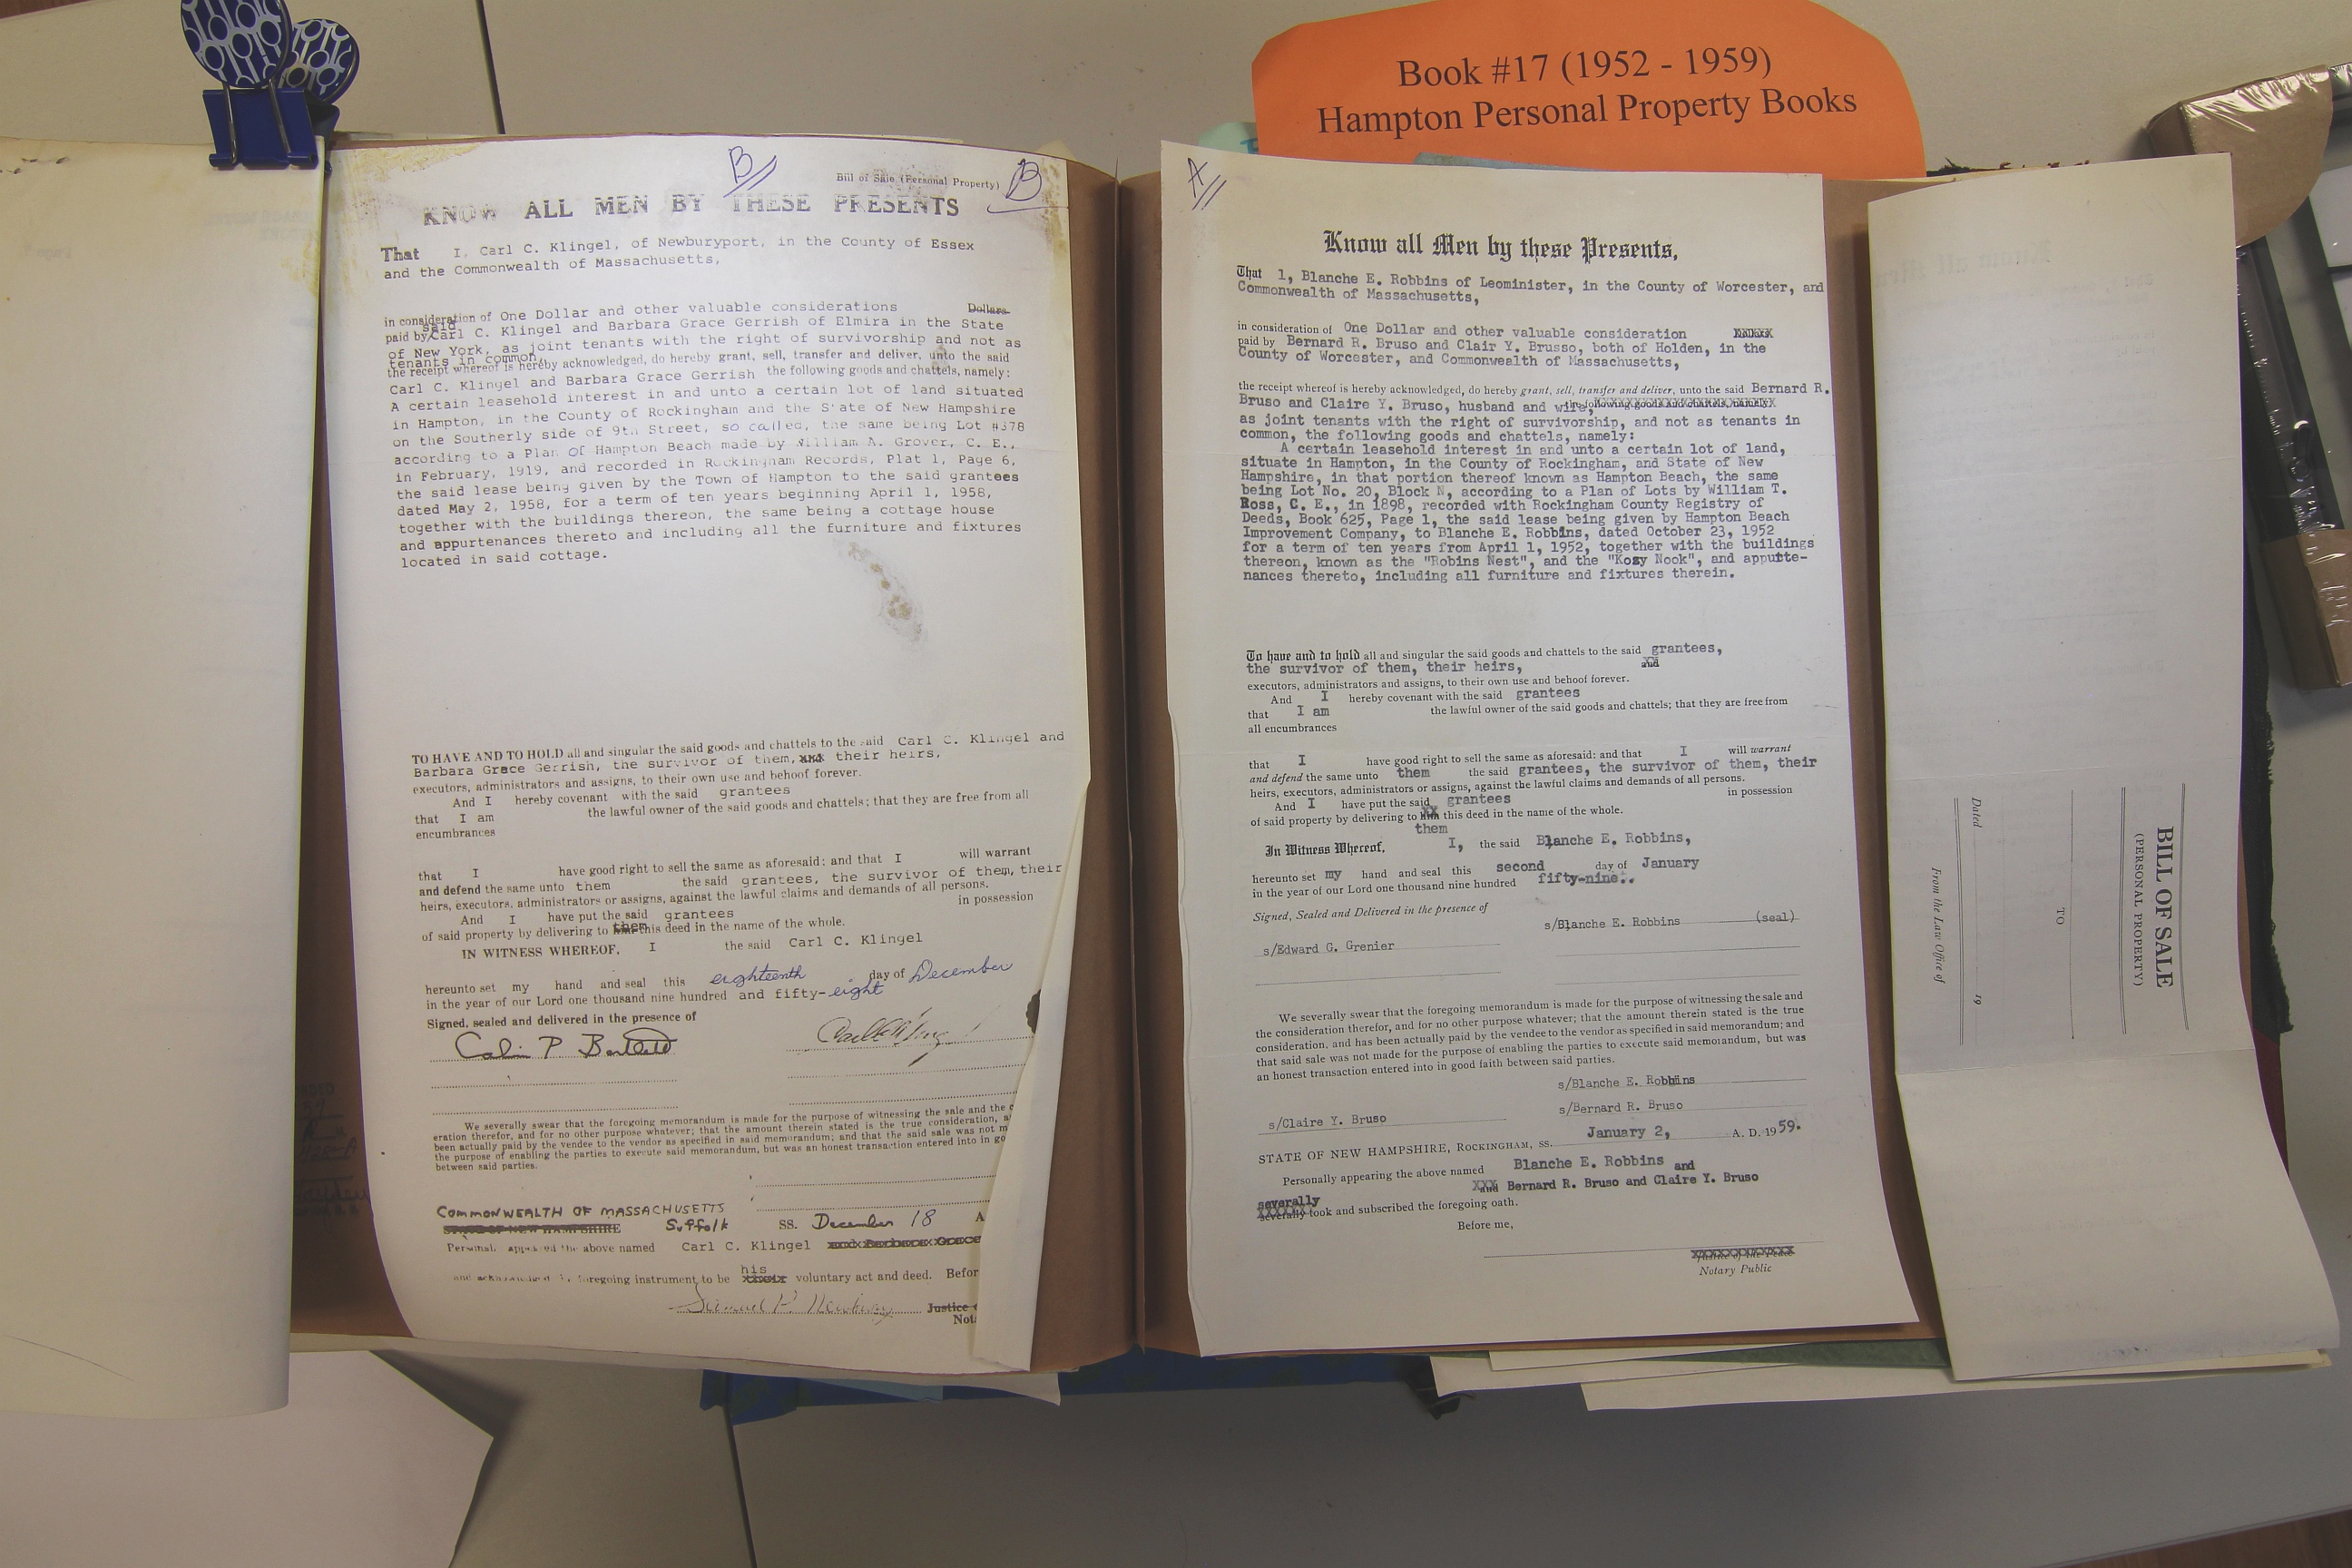 Book #17 (1952 - 1959)
Hampton Personal Property Books
B
Bill of Sale (Personal Property)
B
KNOW ALL MEN BY THESE PRESENTS
That I, Carl C. Klingel, of Newburyport, in the County of Essex
and the Commonwealth of Massachusetts,
in consideration of One Dollar and other valuable considerations Dollars
said
paid by/Carl C. Klingel and Barbara Grace Gerrish of Elmira in the State
of New York, as joint tenants with the right of survivorship and not as
tenants in common,
the receipt whereof is hereby acknowledged, do hereby grant, sell, transfer and deliver, unto the said
Carl C. Klingel and Barbara Grace Gerrish the following goods and chattels, namely:
A certain leasehold interest in and unto a certain lot of land situated
in Hampton, in the County of Rockingham and the State of New Hampshire
on the Southerly side of 9th Street, so called, the same being Lot #378
according to a Plan of Hampton Beach made by William A. Grover, C. E.,
in February, 1919, and recorded in Rockingham Records, Plat 1, Page 6,
the said lease being given by the Town of Hampton to the said grantees
dated May 2, 1958, for a term of ten years beginning April 1, 1958,
together with the buildings thereon, the same being a cottage house
and appurtenances thereto and including all the furniture and fixtures
located in said cottage.
TO HAVE AND TO HOLD all and singular the said goods and chattels to the said Carl C. Klingel and
Barbara Grace Gerrish, the survivor of them, xxx their heirs,
executors, administrators and assigns, to their own use and behoof forever.
And I hereby covenant with the said grantees
that I am the lawful owner of the said goods and chattels; that they are free from all
encumbrances
that I have good right to sell the same as aforesaid; and that I will warrant
and defend the same unto them the said grantees, the survivor of them, their
heirs, executors, administrators or assigns, against the lawful claims and demands of all persons.
And I have put the said grantees in possession
of said property by delivering to them this deed in the name of the whole.
IN WITNESS WHEREOF, I the said Carl C. Klingel
hereunto set my hand and seal this eighteenth day of December
in the year of our Lord one thousand nine hundred and fifty-eight
Signed, sealed and delivered in the presence of
We severally swear that the foregoing memorandum is made for the purpose of witnessing the sale and the c
eration therefor, and for no other purpose whatever; that the amount therein stated is the true consideration, a
been actually paid by the vendee to the vendor as specified in said memorandum; and that the said sale was not m
the purpose of enabling the parties to execute said memorandum, but was an honest transaction entered into in go
between said parties.
COMMONWEALTH OF MASSACHUSETTS
STATE OF NEW HAMPSHIRE Suffolk SS. December 18 A
Personally appeared the above named Carl C. Klingel and Barbara Grace
his
and acknowledged the foregoing instrument to be voluntary act and deed. Befor
Justice
Not
A
Know all Men by these Presents,
That I, Blanche E. Robbins of Leominister, in the County of Worcester, and
Commonwealth of Massachusetts,
in consideration of One Dollar and other valuable consideration
paid by Bernard R. Bruso and Clair Y. Brusso, both of Holden, in the
County of Worcester, and Commonwealth of Massachusetts,
the receipt whereof is hereby acknowledged, do hereby grant, sell, transfer and deliver, unto the said Bernard R.
Bruso and Claire Y. Bruso, husband and wife, the following goods and chattels, namely:
as joint tenants with the right of survivorship, and not as tenants in
common, the following goods and chattels, namely:
A certain leasehold interest in and unto a certain lot of land,
situate in Hampton, in the County of Rockingham, and State of New
Hampshire, in that portion thereof known as Hampton Beach, the same
being Lot No. 20, Block N, according to a Plan of Lots by William T.
Ross, C. E., in 1898, recorded with Rockingham County Registry of
Deeds, Book 625, Page 1, the said lease being given by Hampton Beach
Improvement Company, to Blanche E. Robbins, dated October 23, 1952
for a term of ten years from April 1, 1952, together with the buildings
thereon, known as the "Robins Nest", and the "Kozy Nook", and appurte-
nances thereto, including all furniture and fixtures therein.
To have and to hold all and singular the said goods and chattels to the said grantees,
the survivor of them, their heirs, and
executors, administrators and assigns, to their own use and behoof forever.
And I hereby covenant with the said grantees
that I am the lawful owner of the said goods and chattels; that they are free from
all encumbrances
that I have good right to sell the same as aforesaid: and that I will warrant
and defend the same unto them the said grantees, the survivor of them, their
heirs, executors, administrators or assigns, against the lawful claims and demands of all persons.
And I have put the said grantees in possession
of said property by delivering to him this deed in the name of the whole.
them
In Witness Whereof, I, the said Blanche E. Robbins,
hereunto set my hand and seal this second day of January
in the year of our Lord one thousand nine hundred fifty-nine..
Signed, Sealed and Delivered in the presence of
s/Blanche E. Robbins (seal)
s/Edward G. Grenier
We severally swear that the foregoing memorandum is made for the purpose of witnessing the sale and
the consideration therefor, and for no other purpose whatever; that the amount therein stated is the true
consideration, and has been actually paid by the vendee to the vendor as specified in said memorandum; and
that said sale was not made for the purpose of enabling the parties to execute said memorandum, but was
an honest transaction entered into in good faith between said parties.
s/Blanche E. Robbins
s/Claire Y. Bruso s/Bernard R. Bruso
STATE OF NEW HAMPSHIRE, ROCKINGHAM, SS. January 2, A. D. 1959.
Personally appearing the above named Blanche E. Robbins and
and Bernard R. Bruso and Claire Y. Bruso
severally
severally took and subscribed the foregoing oath.
Before me,
Justice of the Peace
Notary Public
BILL OF SALE
(PERSONAL PROPERTY)
TO
Dated 19
From the Law Office of